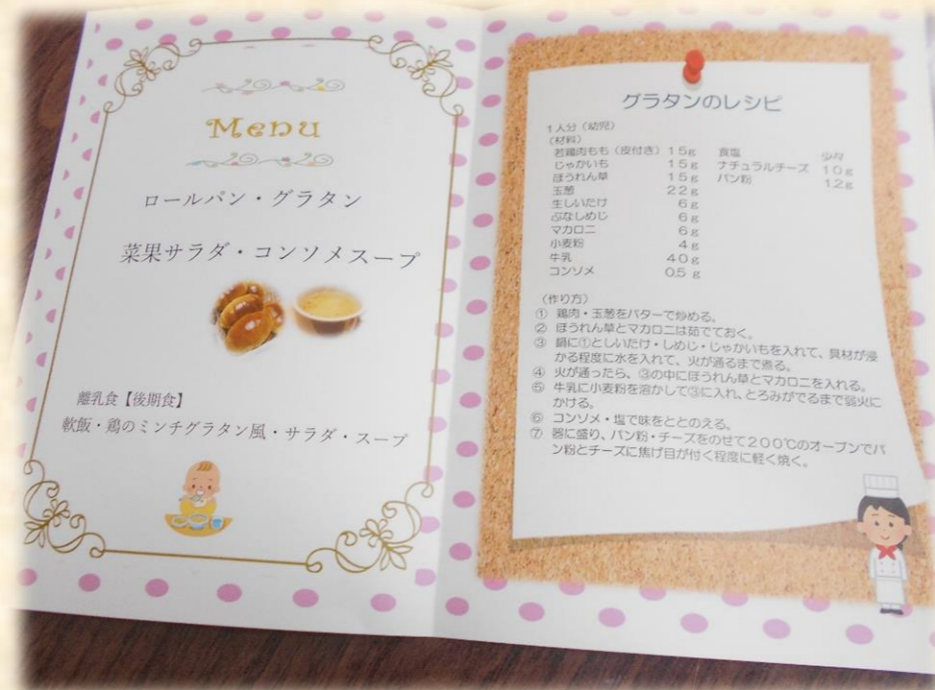 Menu
ロールパン・グラタン
菜果サラダ・コンソメスープ
離乳食【後期食】
軟飯・鶏のミンチグラタン風・サラダ・スープ
グラタンのレシピ
1人分（幼児）
（材料）
若鶏肉もも（皮付き） 15g 食塩 少々
じゃかいも 15g ナチュラルチーズ 10g
ほうれん草 15g パン粉 1.2g
玉葱 22g
生しいたけ 6g
ぶなしめじ 6g
マカロニ 6g
小麦粉 4g
牛乳 40g
コンソメ 0.5g
（作り方）
① 鶏肉・玉葱をバターで炒める。
② ほうれん草とマカロニは茹でておく。
③ 鍋に①としいたけ・しめじ・じゃかいもを入れて、具材が浸
かる程度に水を入れて、火が通るまで煮る。
④ 火が通ったら、③の中にほうれん草とマカロニを入れる。
⑤ 牛乳に小麦粉を溶かして③に入れ、とろみがでるまで弱火に
かける。
⑥ コンソメ・塩で味をととのえる。
⑦ 器に盛り、パン粉・チーズをのせて200℃のオーブンでパ
ン粉とチーズに焦げ目が付く程度に軽く焼く。